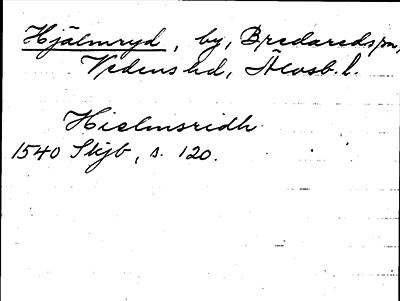 Hjälmryd, by, Bredareds sn,
Vedens hd, Älvsb. l.
Hielmsridh
1540 Skjb, s. 120.